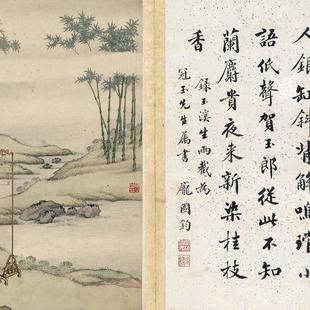 人銀缸斜背解鳴璫小
語低聲賀玉郎從此不知
蘭麝貴夜来新染桂枝
香
錄玉溪生兩截為
冠玉先生屬書 龐國鈞